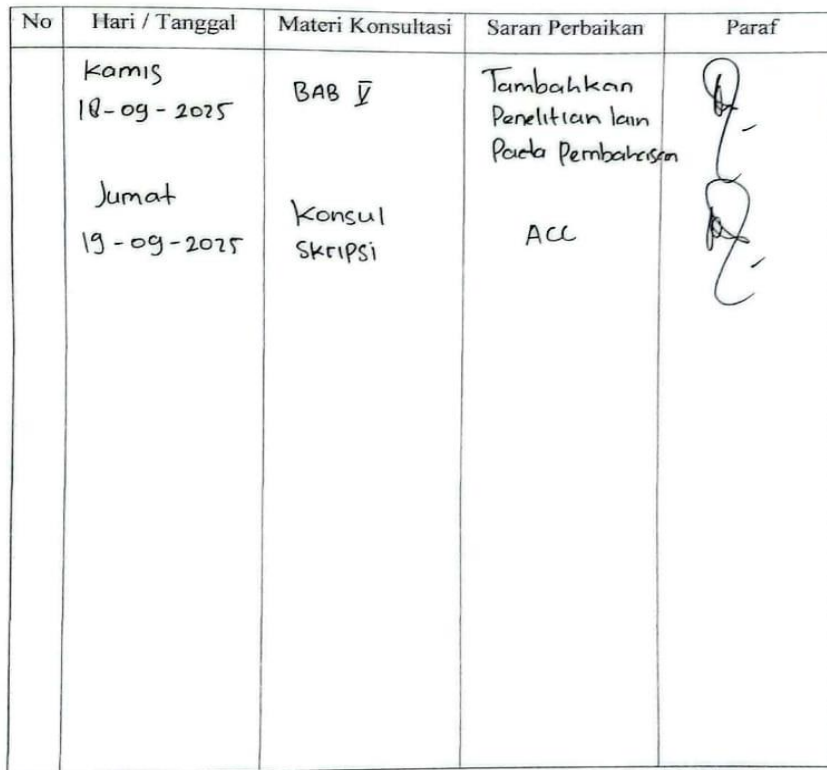 No Hari / Tanggal Materi Konsultasi Saran Perbaikan Paraf
Kamis
18-09-2025
BAB V
Tambahkan
Penelitian lain
Pada Pembahasan
Jumat
19-09-2025
Konsul
Skripsi
ACC